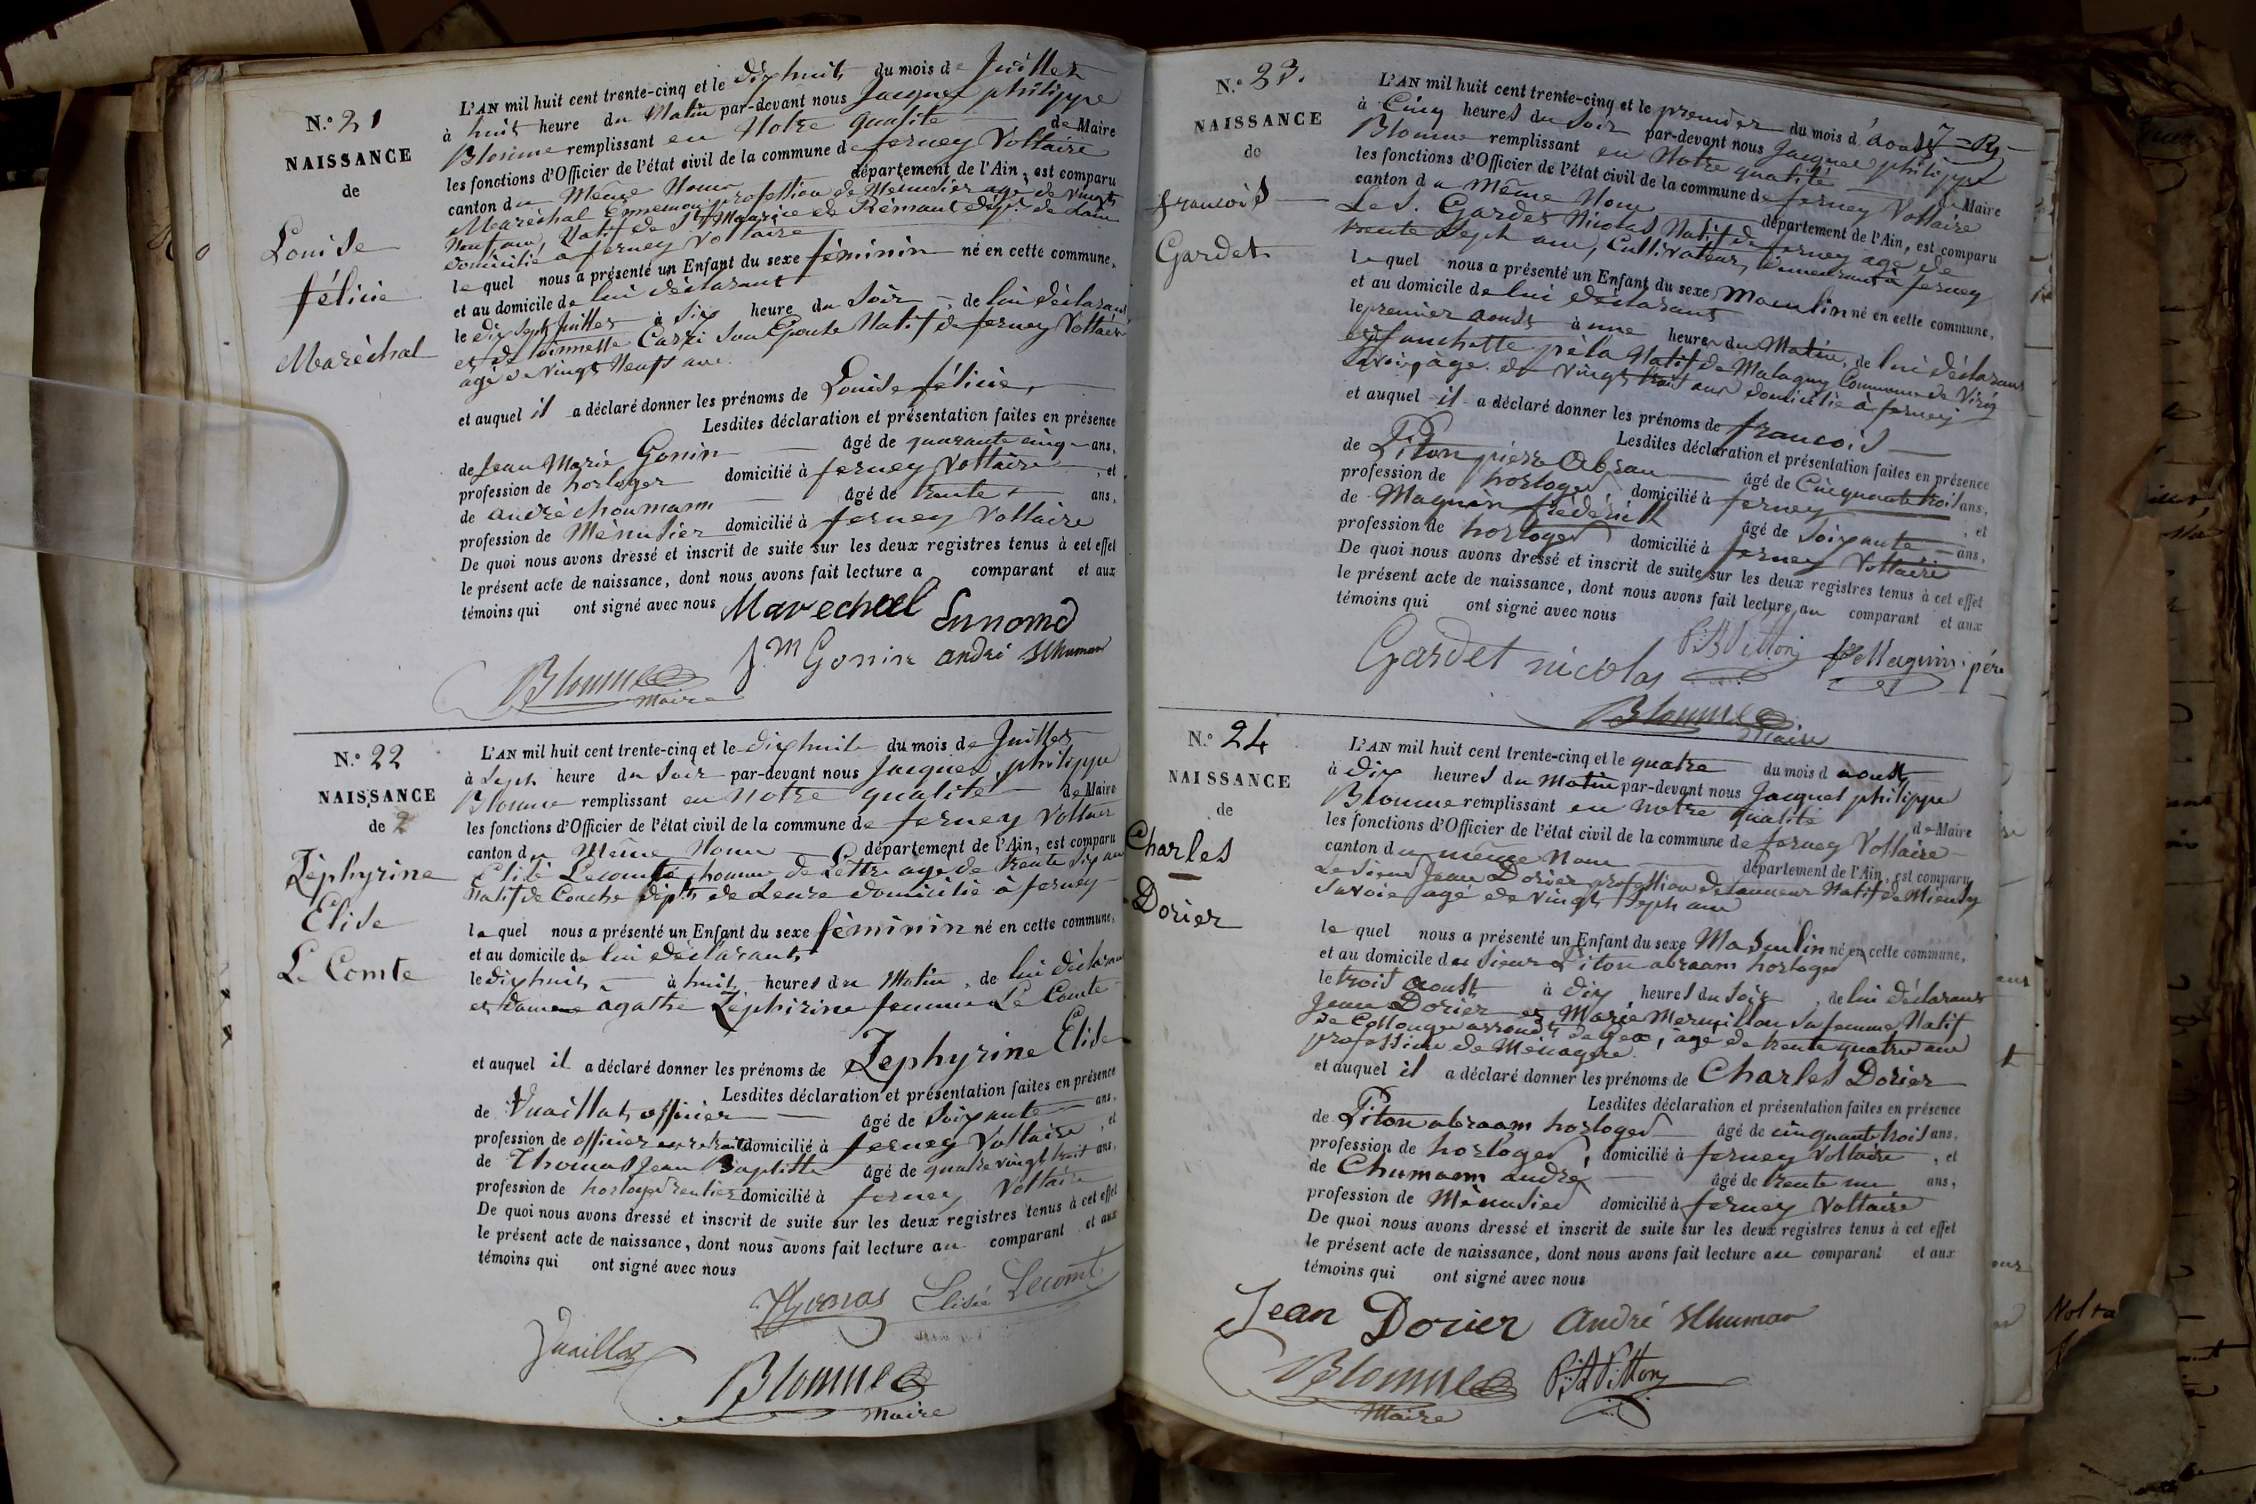 N.° 21
NAISSANCE
de
Louise
félicie
Maréchal
L'AN mil huit cent trente-cinq et le dixhuit du mois de Juillet
à huit heure du Matin par-devant nous Jacques philippe
Blomme remplissant en Notre qualité de Maire
les fonctions d'Officier de l'état civil de la commune de ferney Voltaire
canton du Même Nom département de l'Ain, est comparu
Maréchal Ennemon profession de Menusier age de vingt
Neuf ans, Natif de St Maurice de Rémant dépt. de Lain
domicilié a ferney Voltaire
le quel nous a présenté un Enfant du sexe féminin né en cette commune,
et au domicile de lui déclarant
le dix Sept Juillet à Six heure du Soir de lui déclarant
et de Son Epouse Natif de ferney Voltaire
agé de vingt Neuf ans
et auquel il a déclaré donner les prénoms de Louise félicie,
Lesdites déclaration et présentation faites en présence
de Jean Marie Gonin âgé de quarante cinq ans,
profession de horloger domicilié à ferney Voltaire, et
de andré choumann âgé de trente ans,
profession de Ménusier domicilié à ferney Voltaire
De quoi nous avons dressé et inscrit de suite sur les deux registres tenus à cet effet
le présent acte de naissance, dont nous avons fait lecture a comparant et aux
témoins qui ont signé avec nous Marechal Ennomd
J. M Gonin andré Schuman
Blomme
Maire
N.° 22
NAISSANCE
de 2
Zéphyrine
Elise
Le Comte
L'AN mil huit cent trente-cinq et le dixhuit du mois de Juillet
à Sept heure du Soir par-devant nous Jacques philippe
Blomme remplissant en Notre qualité de Maire
les fonctions d'Officier de l'état civil de la commune de ferney Voltaire
canton du Même Nom département de l'Ain, est comparu
Elisé Lecomte homme de Lettre age de trente Six ans
Natif de Conche dépt. de Leure domicilié à ferney
le quel nous a présenté un Enfant du sexe féminin né en cette commune,
et au domicile de lui déclarant
le dixhuit à huit heures du Matin, de lui déclarant
et dame agathe Zéphirine femme Le Comte
et auquel il a déclaré donner les prénoms de Zephyrine Elise
Lesdites déclaration et présentation faites en présence
de Vuaillat officier âgé de Soixante ans,
profession de officier en retrait domicilié à ferney Voltaire, et
de Thomas Jean Baptiste âgé de quatre vingt trois ans,
profession de horloger rentier domicilié à ferney Voltaire
De quoi nous avons dressé et inscrit de suite sur les deux registres tenus à cet effet
le présent acte de naissance, dont nous avons fait lecture au comparant et aux
témoins qui ont signé avec nous
Thomas Elisée Lecomte
Vuaillat
Blomme
Maire
N.° 23.
NAISSANCE
de
francois
Gardet
L'AN mil huit cent trente-cinq et le premier du mois d'aoust
à Cinq heures du Soir par-devant nous Jacques philippe
Blomme remplissant en Notre qualité de Maire
les fonctions d'Officier de l'état civil de la commune de ferney Voltaire
canton du même Nom département de l'Ain, est comparu
Le S. Gardet Nicolas Natif de ferney age de
trente Sept ans, Cultivateur, demeurant à ferney
le quel nous a présenté un Enfant du sexe Masculin né en cette commune,
et au domicile de lui déclarant
le premier aoust à une heure du Matin, de lui déclarant
et fanchette péla Natif de Malagny Commune de Viri
Savoi, age de vingt huit ans domicilié à ferney
et auquel il a déclaré donner les prénoms de francois
Lesdites déclaration et présentation faites en présence
de Piton pierre Abram âgé de Cinquante trois ans,
profession de horloger domicilié à ferney, et
de Magnin frédérick âgé de Soixante ans,
profession de horloger domicilié à ferney Voltaire
De quoi nous avons dressé et inscrit de suite sur les deux registres tenus à cet effet
le présent acte de naissance, dont nous avons fait lecture au comparant et aux
témoins qui ont signé avec nous
Gardet nicolas Magnin père
Blomme
Maire
N.° 24
NAISSANCE
de
Charles
Dorier
L'AN mil huit cent trente-cinq et le quatre du mois d aoust
à dix heures du Matin par-devant nous Jacques philippe
Blomme remplissant en notre qualité de Maire
les fonctions d'Officier de l'état civil de la commune de ferney Voltaire
canton du même Nom département de l'Ain, est comparu
Le Sieur Jean Dorier profession de tanneur Natif de Miensy
Savoie agé de vingt Sept ans
le quel nous a présenté un Enfant du sexe Masculin né en cette commune,
et au domicile du Sieur Piton abraam horloger
le trois aoust à dix heures du Soir, de lui déclarant
Jean Dorier et Marie Mermillon Sa femme Natif
de Collonge arrondt. de Gex, agé de trente quatre ans
profession de Ménagere.
et auquel il a déclaré donner les prénoms de Charles Dorier
Lesdites déclaration et présentation faites en présence
de Piton abraam horloger âgé de cinquante trois ans,
profession de horloger, domicilié à ferney Voltaire, et
de Chumann andré âgé de trente un ans,
profession de Ménusier domicilié à ferney Voltaire
De quoi nous avons dressé et inscrit de suite sur les deux registres tenus à cet effet
le présent acte de naissance, dont nous avons fait lecture au comparant et aux
témoins qui ont signé avec nous
Jean Dorier André Schuman
Blomme
Maire